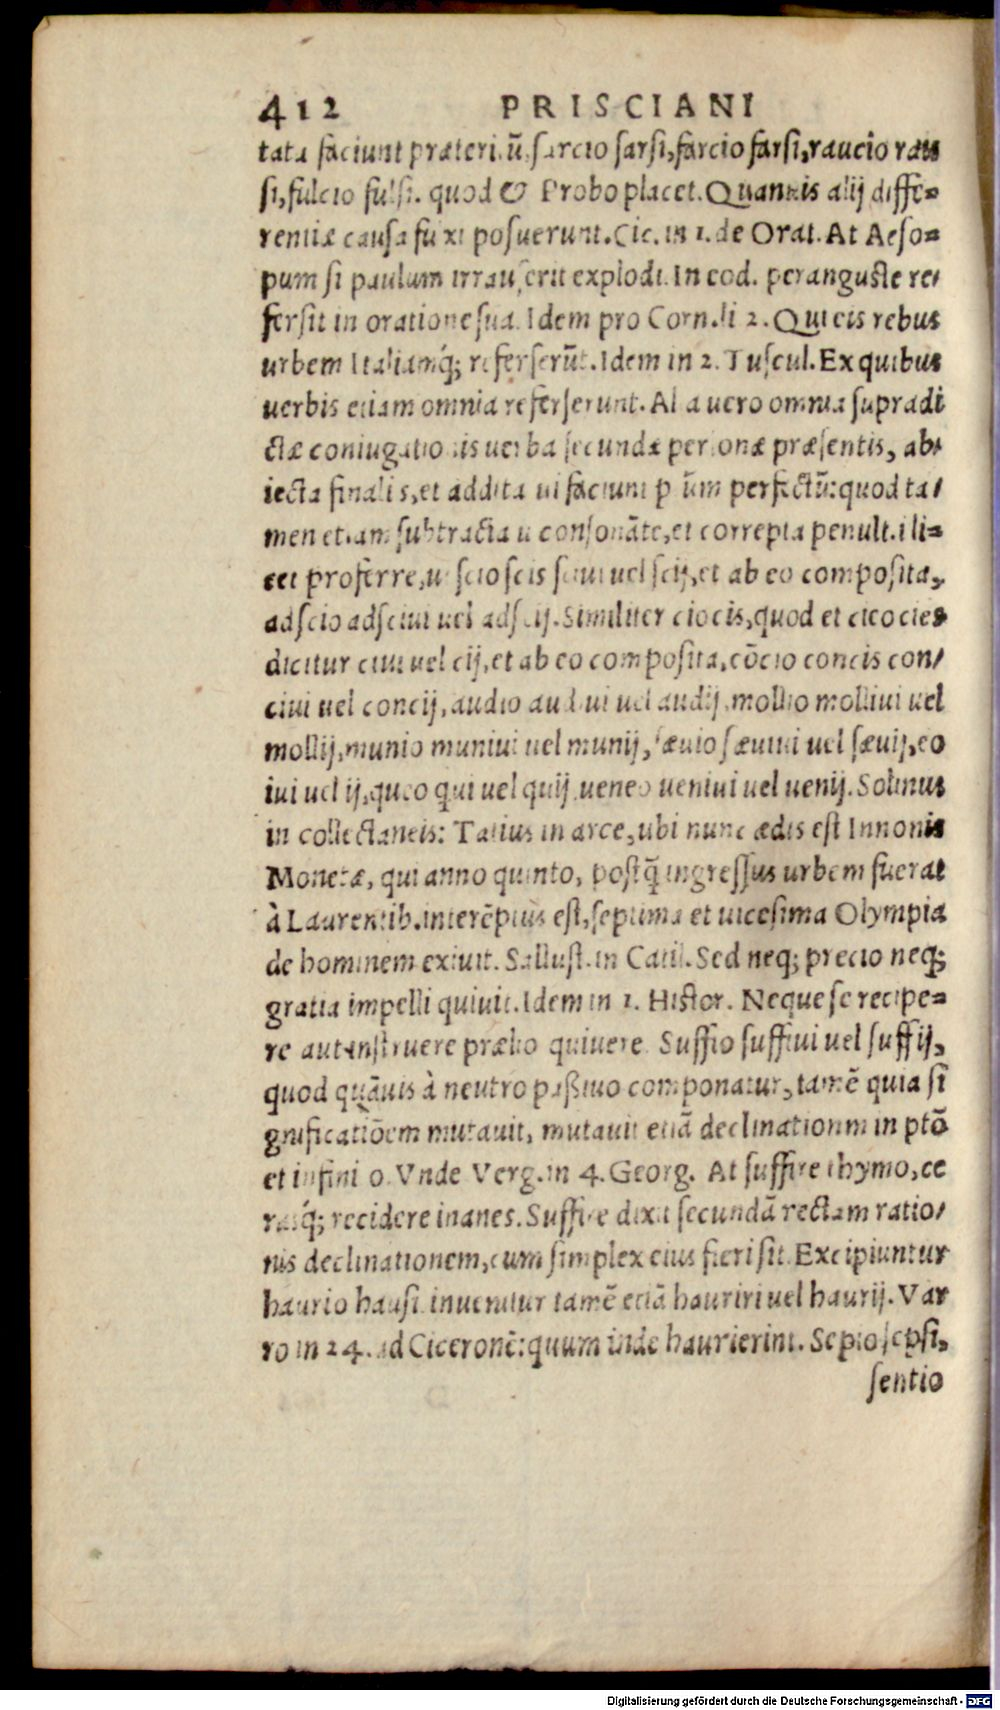 412 PRISCIANI
tata faciunt præteri.ũ. sarcio sarsi, farcio farsi, raucio rau
si, fulcio fulsi. quod & Probo placet. Quamuis alij diffe-
rentiæ causa fu xi posuerunt. Cic. in 1. de Orat. At Aeso-
pum si paulum irrauserit explodi. In eod. peranguste re-
fersit in oratione sua. Idem pro Corneli 2. Qui eis rebus
urbem Italiamq́; referserũt. Idem in 2. Tuscul. Ex quibus
uerbis etiam omnia referserunt. Alia uero omnia supradi
ctæ coniugationis uerba secundæ personæ præsentis, ab-
iecta finali s, et addita ui faciunt p ũm perfectũ: quod ta-
men etiam subtracta u consonãte, et correpta penult. i li-
cet proferre, ut scio scis sciui uel scij, et ab eo composita,
adscio adsciui uel adscij. Similiter cio cis, quod et cieo cies
dicitur ciui uel cij, et ab eo composita, cõcio concis con-
ciui uel concij, audio audiui uel audij, mollio molliui uel
mollij, munio muniui uel munij, sæuio sæuiui uel sæuij, eo
iui uel ij, queo qui ui uel quij, ueneo ueniui uel uenij. Solinus
in collectaneis: Tatius in arce, ubi nunc ædis est Innonis
Monetæ, qui anno quinto, postq̃ ingressus urbem fuerat
à Laurentib. interẽptus est, septima et uicesima Olympia
de hominem exiuit. Sallust. in Catil. Sed neq; precio neq;
gratia impelli quiuit. Idem in 1. Histor. Neque se recipe-
re aut instruere prælio quiuere. Suffio suffiui uel suffij,
quod quãuis à neutro passiuo componatur, tamẽ quia si
gnificatiõem mutauit, mutauit etiã declinationm in ptõ
et infini o. Vnde Verg. in 4. Georg. At suffire thymo, ce
rasq́; recidere inanes. Suffire dixit secundã rectam ratio-
nis declinationem, cum simplex eius fieri sit. Excipiuntur
haurio hausi. inuenitur tamẽ etiã hauriri uel haurij. Var
ro in 24. ad Ciceronẽ: quum inde haurierint. Sepio sepsi,
sentio
Digitalisierung gefördert durch die Deutsche Forschungsgemeinschaft - DFG